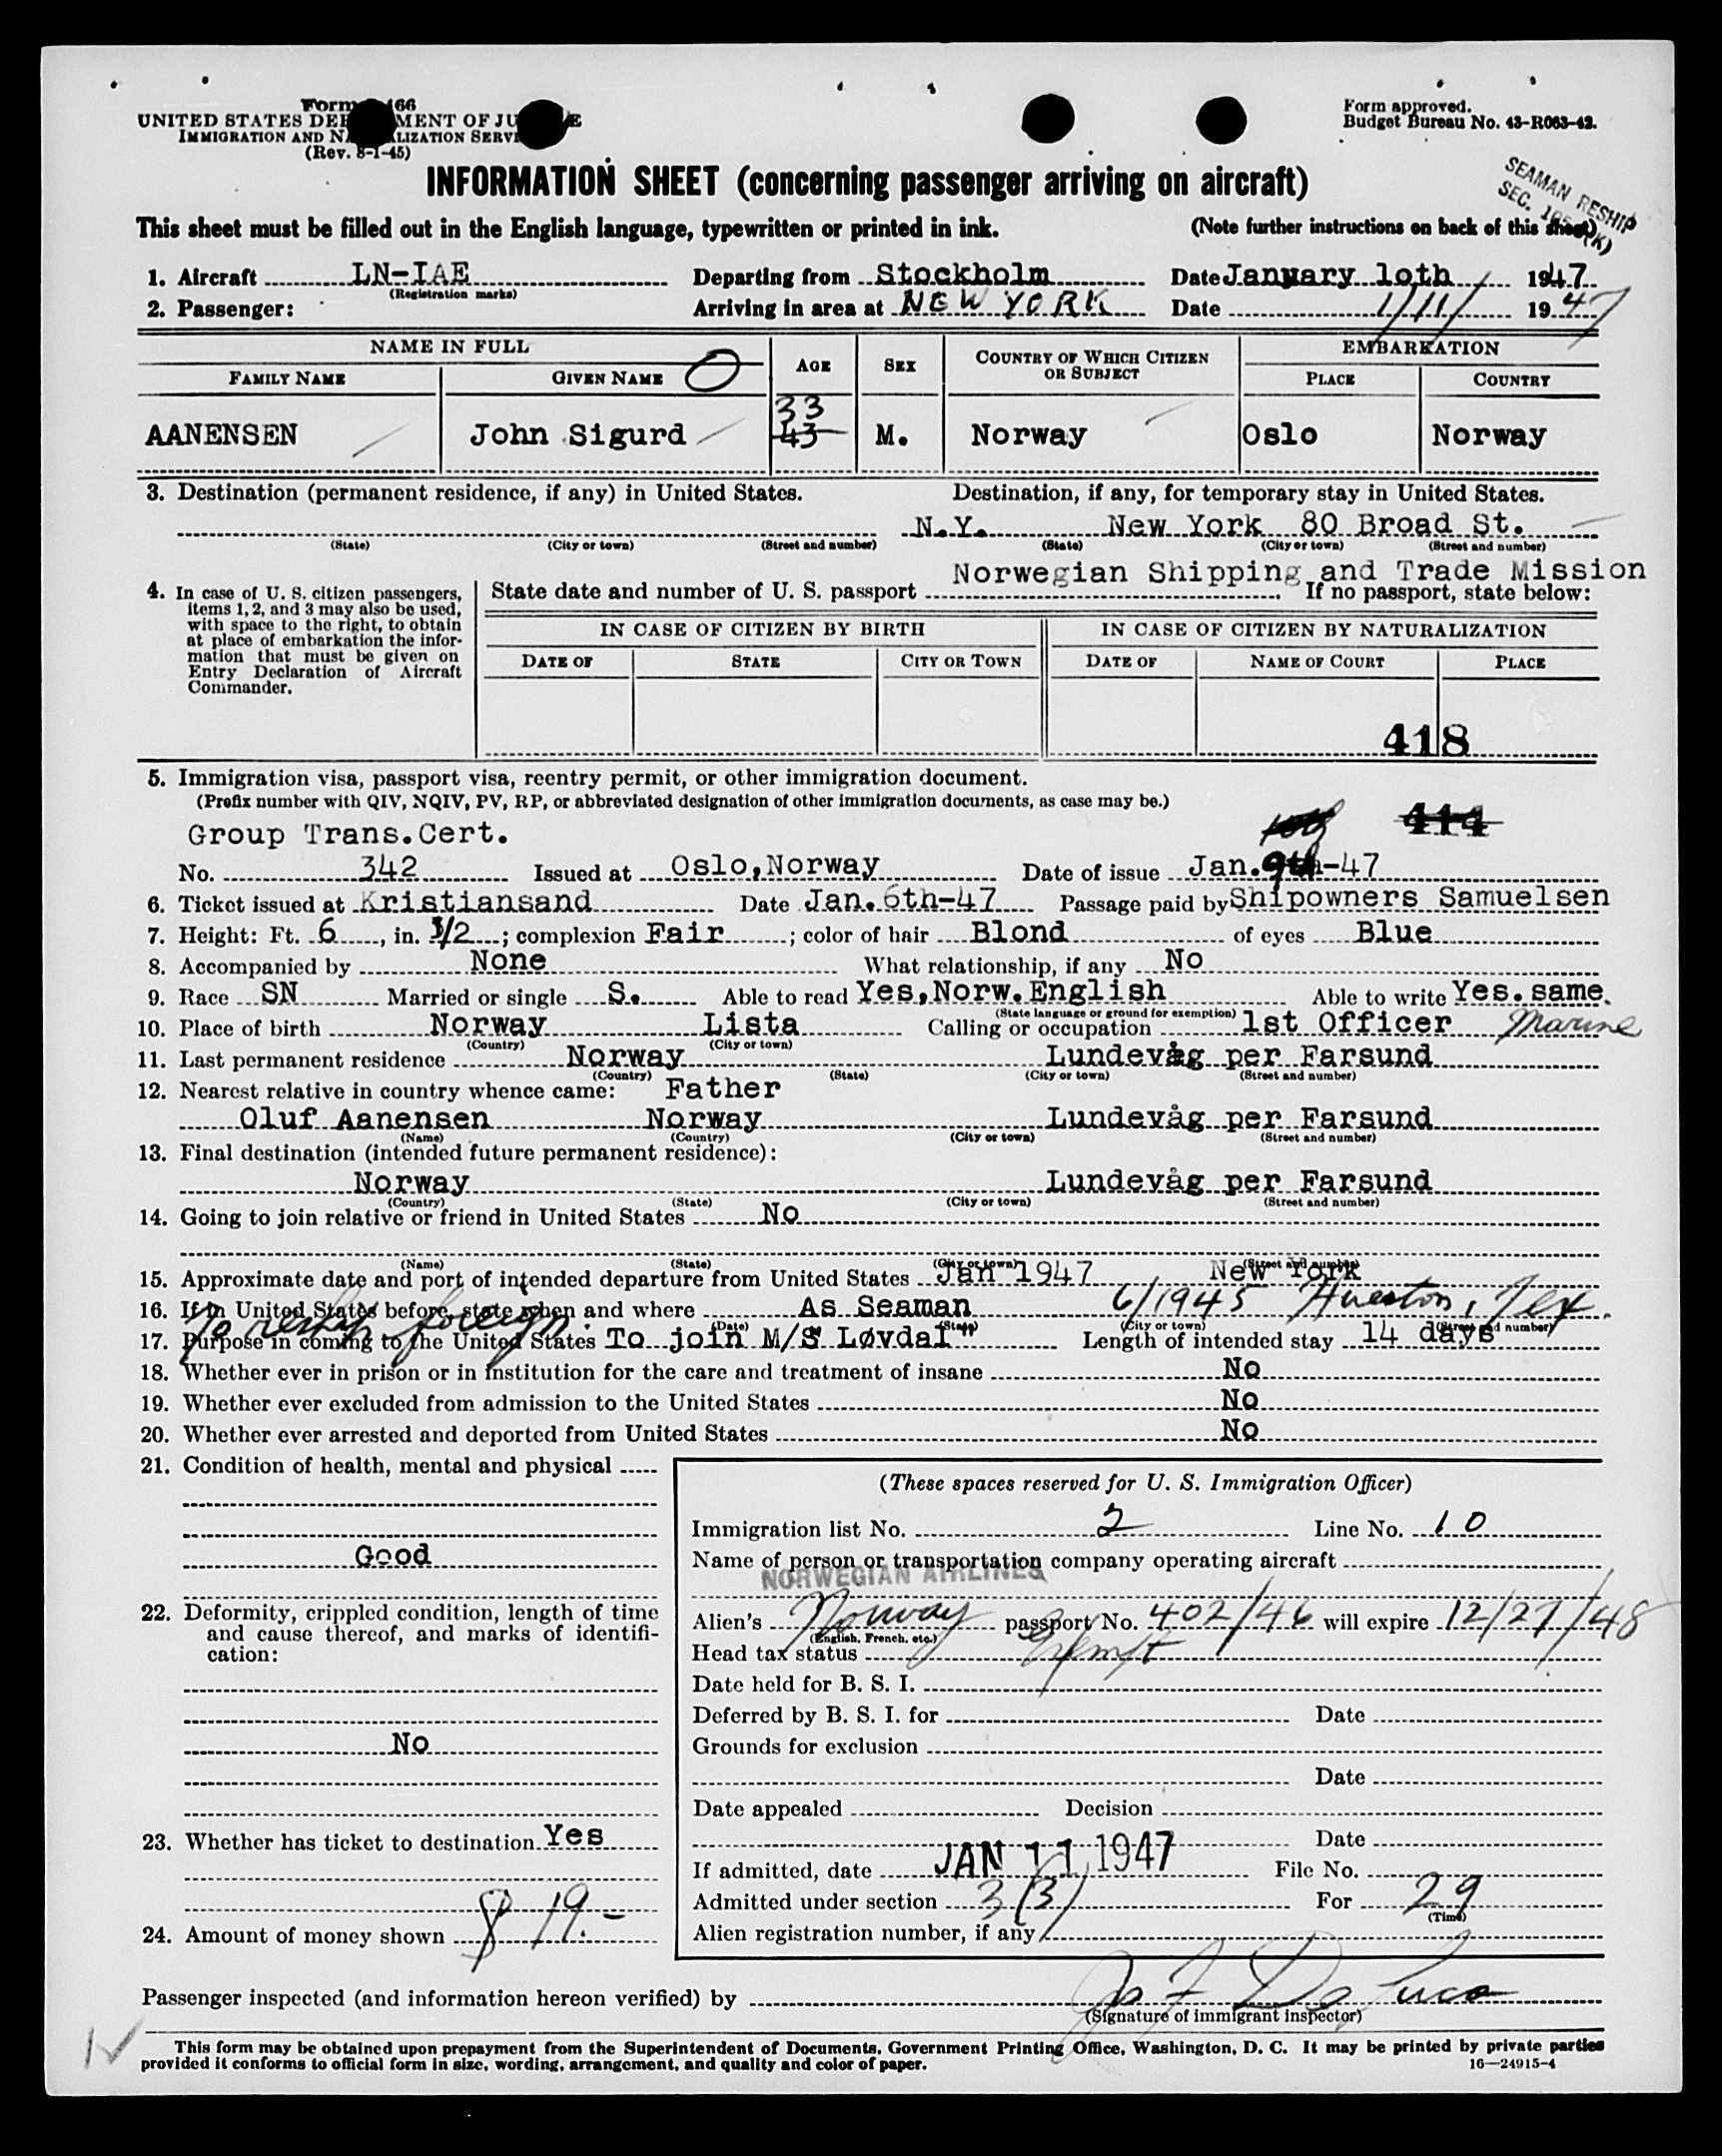 Form 466
UNITED STATES DEPARTMENT OF JUSTICE
IMMIGRATION AND NATURALIZATION SERVICE
(Rev. 8-1-45)
Form approved.
Budget Bureau No. 43-R063-42.
INFORMATION SHEET (concerning passenger arriving on aircraft)
SEAMAN RESHIP
SEC. (K)
This sheet must be filled out in the English language, typewritten or printed in ink. (Note further instructions on back of this sheet)
1. Aircraft LN-IAE Departing from Stockholm Date January 10th 1947
(Registration marks)
2. Passenger: Arriving in area at NEW YORK Date 1/11/ 1947
NAME IN FULL AGE SEX COUNTRY OF WHICH CITIZEN OR SUBJECT EMBARKATION
FAMILY NAME GIVEN NAME PLACE COUNTRY
33
AANENSEN John Sigurd 43 M. Norway Oslo Norway
3. Destination (permanent residence, if any) in United States. Destination, if any, for temporary stay in United States.
N.Y. New York 80 Broad St.
(State) (City or town) (Street and number) (State) (City or town) (Street and number)
Norwegian Shipping and Trade Mission
4. In case of U. S. citizen passengers, items 1, 2, and 3 may also be used, with space to the right, to obtain at place of embarkation the information that must be given on Entry Declaration of Aircraft Commander.
State date and number of U. S. passport If no passport, state below:
IN CASE OF CITIZEN BY BIRTH IN CASE OF CITIZEN BY NATURALIZATION
DATE OF STATE CITY OR TOWN DATE OF NAME OF COURT PLACE
418
5. Immigration visa, passport visa, reentry permit, or other immigration document.
(Prefix number with QIV, NQIV, PV, RP, or abbreviated designation of other immigration documents, as case may be.)
414
Group Trans.Cert.
No. 342 Issued at Oslo,Norway Date of issue Jan.9th-47
6. Ticket issued at Kristiansand Date Jan.6th-47 Passage paid by Shipowners Samuelsen
7. Height: Ft. 6, in. 1/2; complexion Fair; color of hair Blond of eyes Blue
8. Accompanied by None What relationship, if any No
9. Race SN Married or single S. Able to read Yes,Norw.English Able to write Yes.same.
(State language or ground for exemption)
10. Place of birth Norway Lista Calling or occupation 1st Officer Marine
(Country) (City or town)
11. Last permanent residence Norway Lundevåg per Farsund
(Country) (State) (City or town) (Street and number)
12. Nearest relative in country whence came: Father
Oluf Aanensen Norway Lundevåg per Farsund
(Name) (Country) (City or town) (Street and number)
13. Final destination (intended future permanent residence):
Norway Lundevåg per Farsund
(Country) (State) (City or town) (Street and number)
14. Going to join relative or friend in United States No
(Name) (State) (City or town) (Street and number)
15. Approximate date and port of intended departure from United States Jan 1947 New York
16. If in United States before, state when and where As Seaman 6/1945 Hueston, Tex.
(Date) (State) (City or town) (Street and number)
To reship foreign.
17. Purpose in coming to the United States To join M/S Løvdal" Length of intended stay 14 days
18. Whether ever in prison or in institution for the care and treatment of insane No
19. Whether ever excluded from admission to the United States No
20. Whether ever arrested and deported from United States No
21. Condition of health, mental and physical
Good
22. Deformity, crippled condition, length of time and cause thereof, and marks of identification:
No
23. Whether has ticket to destination Yes
24. Amount of money shown $ 19.-
(These spaces reserved for U. S. Immigration Officer)
Immigration list No. 2 Line No. 10
Name of person or transportation company operating aircraft
NORWEGIAN AIRLINES
Alien's Norway passport No. 402/46 will expire 12/27/48
(English, French, etc.)
Head tax status Exempt
Date held for B. S. I.
Deferred by B. S. I. for Date
Grounds for exclusion
Date
Date appealed Decision
Date
If admitted, date JAN 11 1947 File No.
Admitted under section 3(3) For 29
(Time)
Alien registration number, if any
Passenger inspected (and information hereon verified) by Jos F De Luca
(Signature of immigrant inspector)
This form may be obtained upon prepayment from the Superintendent of Documents, Government Printing Office, Washington, D. C. It may be printed by private parties
provided it conforms to official form in size, wording, arrangement, and quality and color of paper. 16—24915-4